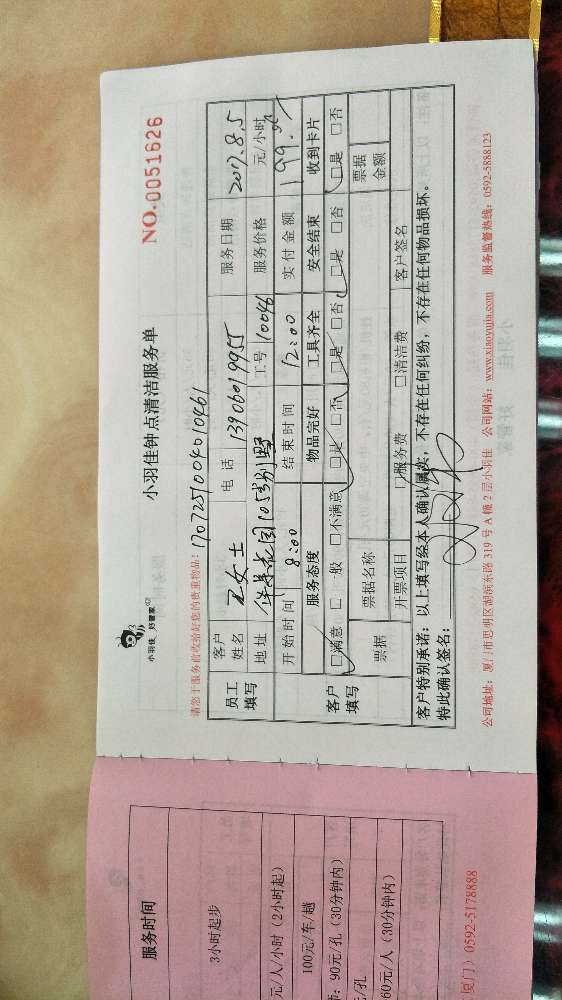 小羽佳 好管家
小羽佳钟点清洁服务单
NO.0051626
请您于服务前收拾好您的贵重物品: 170725100401046 1
员工填写 客户姓名 王女士 电话 13906019955 服务日期 2017.8.5
地址 105号别墅 工号 10046 服务价格 元/小时
开始时间 8:00 结束时间 12:00 实付金额
客户填写 服务态度 物品完好 工具齐全 安全结束 收到卡片
□满意 □一般 □不满意 □是 □否 □是 □否 □是 □否 □是 □否
票据 票据名称 票据金额
开票项目 □服务费 □清洁费 客户签名
客户特别承诺: 以上填写经本人确认属实, 不存在任何纠纷, 不存在任何物品损坏。
特此确认签名:
公司地址: 厦门市思明区湖滨东路 319 号 A 幢 2 层小羽佳 公司网站: www.xiaoyujia.com 服务监督热线: 0592-5888123
服务时间
3小时起步
元/人/小时(2小时起)
100元/车/趟
: 90元/孔(30分钟内)
/孔
60元/人(30分钟内)
厦门) 0592-5178888